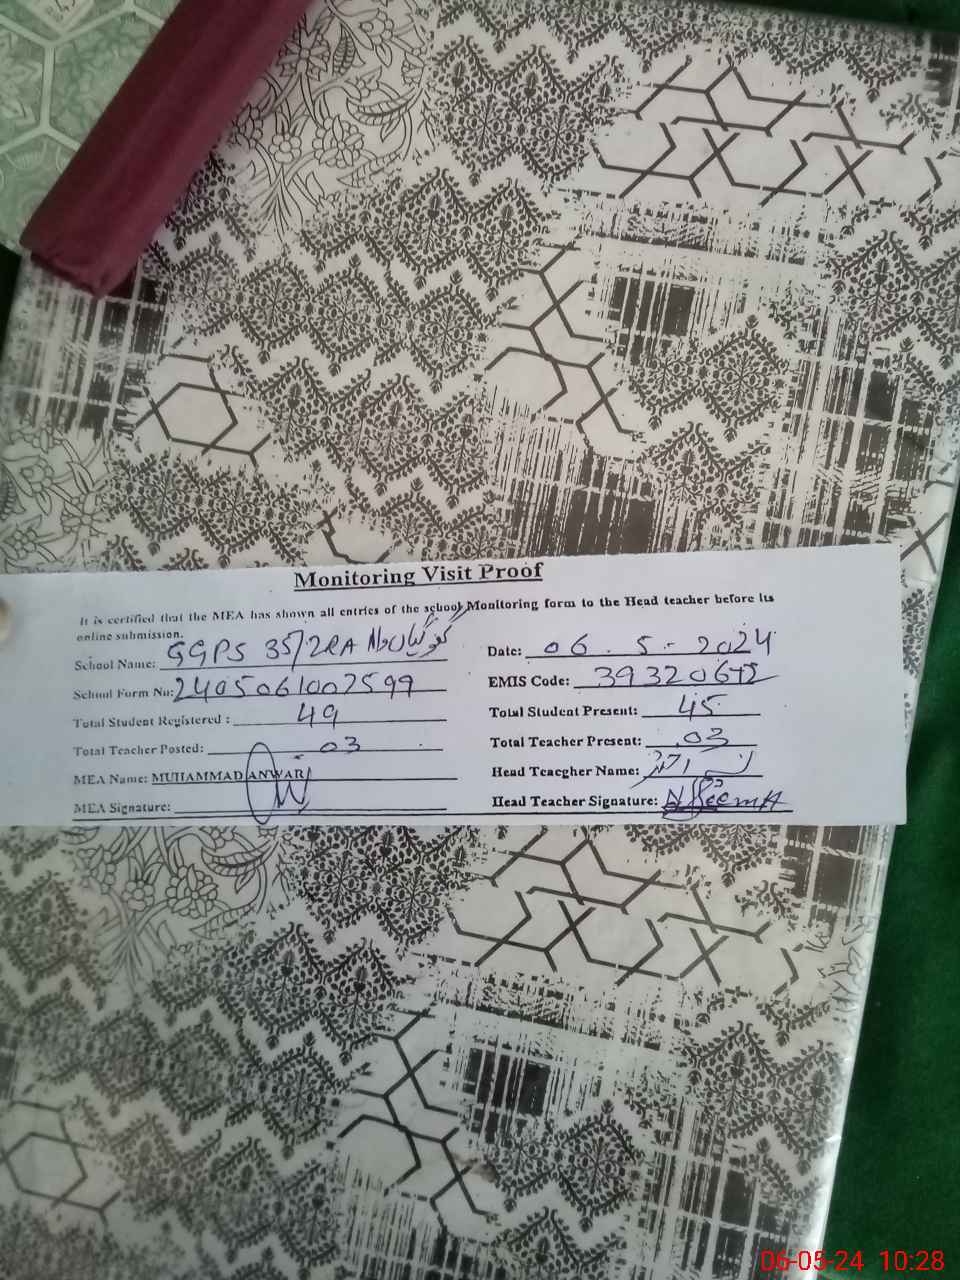 Monitoring Visit Proof
It is certified that the MEA has shown all entries of the school Monitoring form to the Head teacher before its
online submission.
School Name: GGPS 35/2RA
Date: 06 . 5 - 2024
School Form No: 2405061007599
EMIS Code: 39320642
Total Student Registered : 49
Total Student Present: 45
Total Teacher Posted: 03
Total Teacher Present: 03
MEA Name: MUHAMMAD ANWAR
Head Teacgher Name:
MEA Signature:
Head Teacher Signature:
06-05-24 10:28